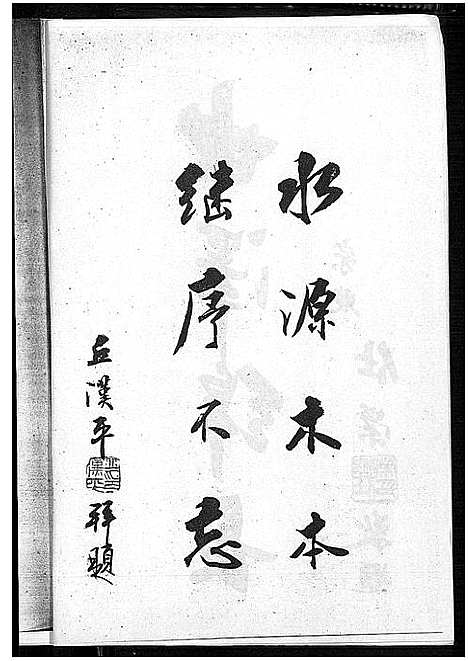 水源木本
继序不忘
丘漢平 拜題